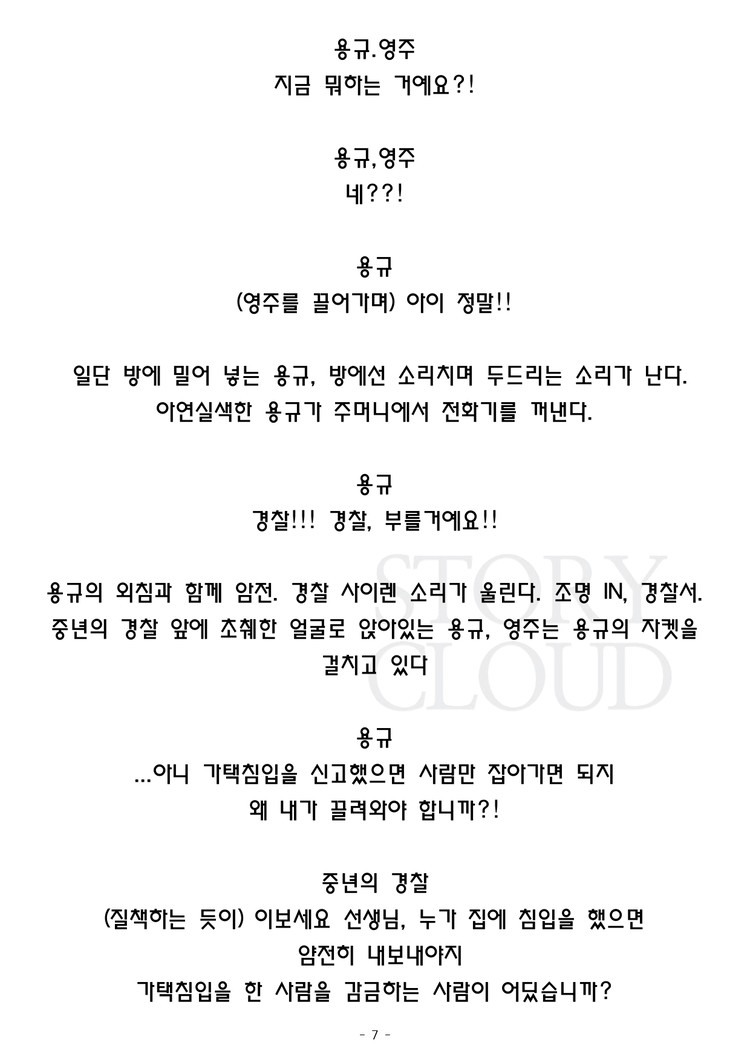 용규.영주
지금 뭐하는 거예요?!
용규,영주
네??!
용규
(영주를 끌어가며) 아이 정말!!
일단 방에 밀어 넣는 용규, 방에선 소리치며 두드리는 소리가 난다.
아연실색한 용규가 주머니에서 전화기를 꺼낸다.
용규
경찰!!! 경찰, 부를거예요!!
용규의 외침과 함께 암전. 경찰 사이렌 소리가 울린다. 조명 IN, 경찰서.
중년의 경찰 앞에 초췌한 얼굴로 앉아있는 용규, 영주는 용규의 자켓을
걸치고 있다
STORY
CLOUD
용규
...아니 가택침입을 신고했으면 사람만 잡아가면 되지
왜 내가 끌려와야 합니까?!
중년의 경찰
(질책하는 듯이) 이보세요 선생님, 누가 집에 침입을 했으면
얌전히 내보내야지
가택침입을 한 사람을 감금하는 사람이 어딨습니까?
- 7 -